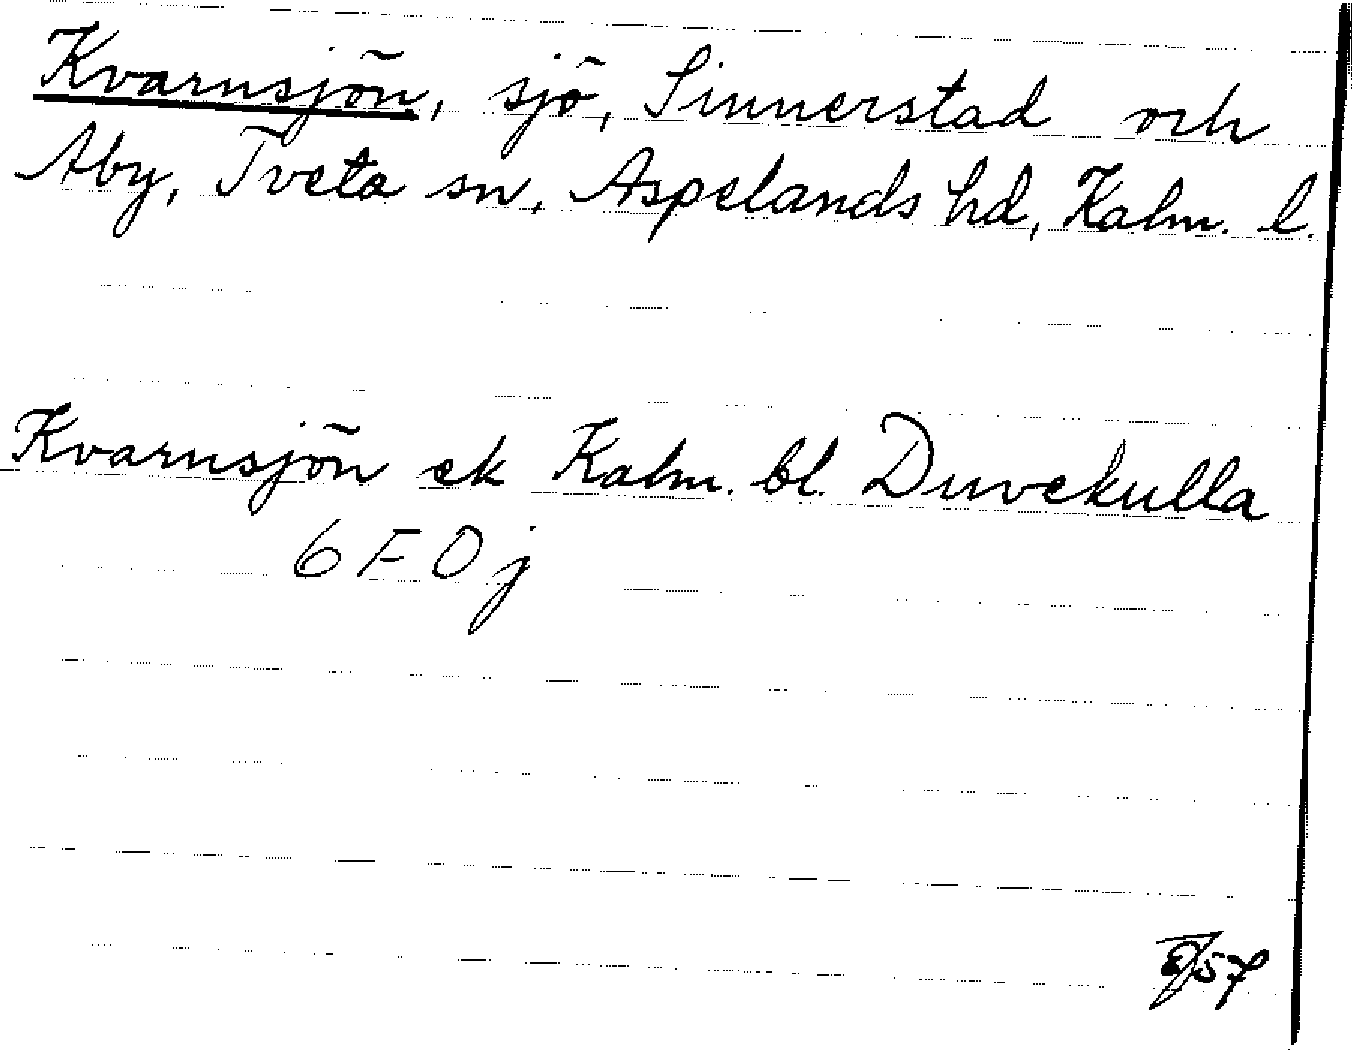 Kvarnsjön, sjö, Sinnerstad och
Åby, Tveta sn, Aspelands hd, Kalm. l.
Kvarnsjön ek Kalm. bl. Duvekulla
6 F 0 j